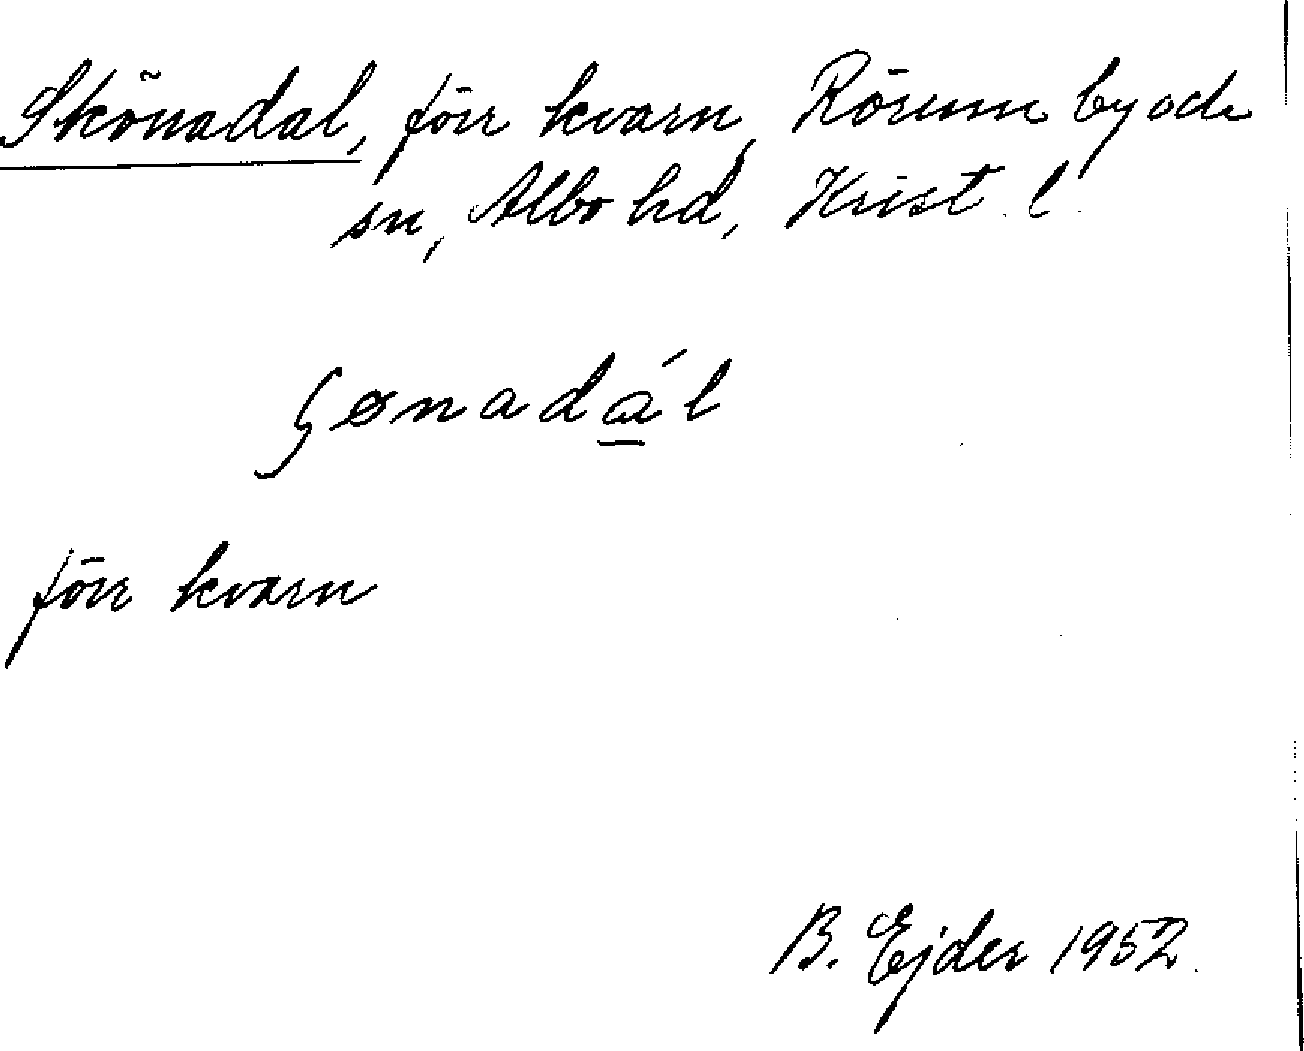 Skönadal, förr kvarn, Rörum by och
sn, Albo hd, Krist. l.
ʃønadál
förr kvarn
B. Ejder 1952.